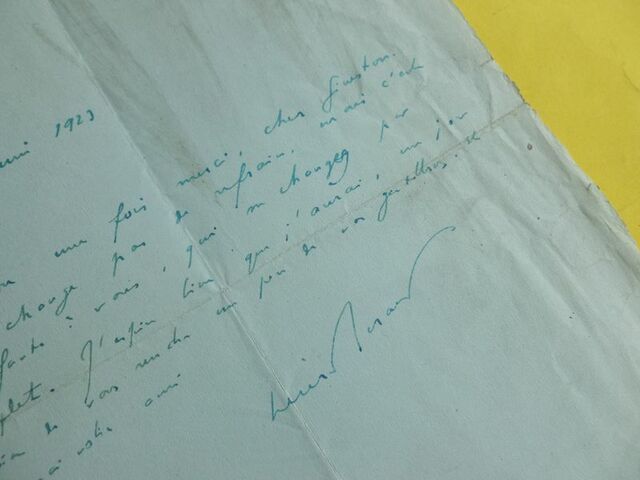 1923
une fois merci, cher Gaston.
change pas de refrain, mais c'est
faute à vous, qui ne changez pas
J'espère bien que j'aurai, un jour
de vous rendre un peu de vos gentillesses. Je
votre ami